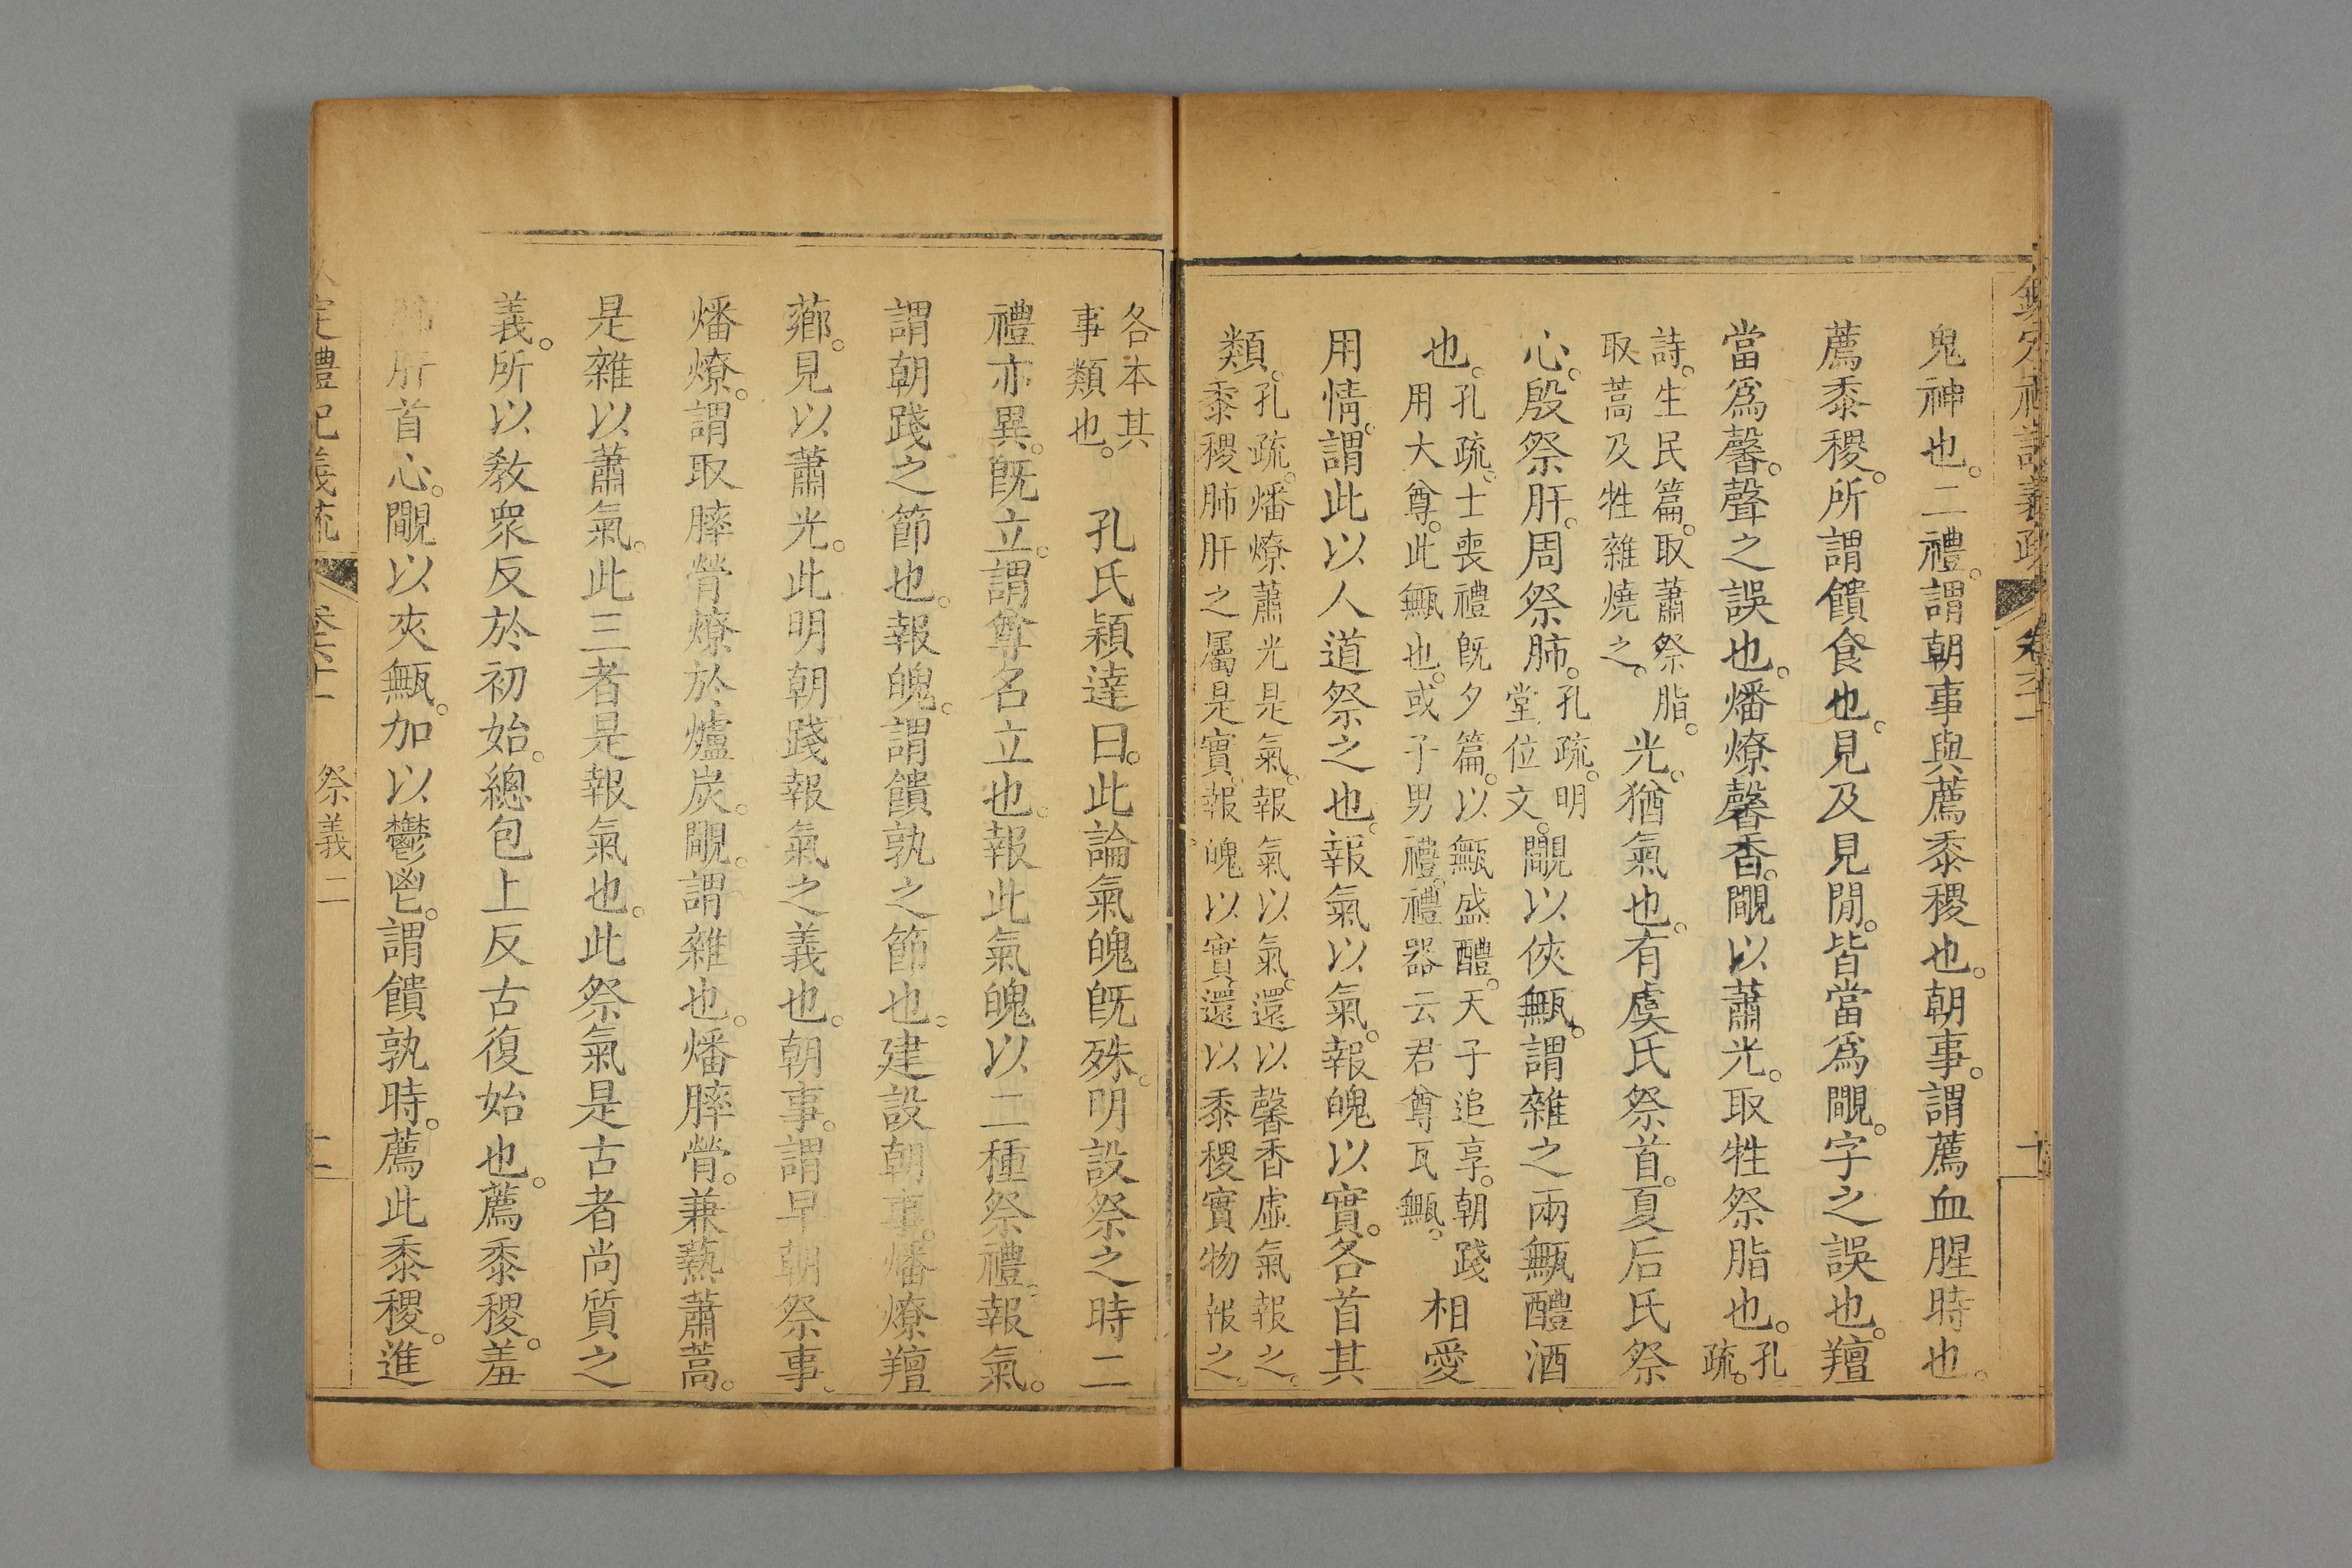 鬼神也。二禮。謂朝事與薦黍稷也。朝事。謂薦血腥時也。
薦黍稷。所謂饋食也。見及見間。皆當爲覸。字之誤也。羶
當爲馨。聲之誤也。燔燎馨香。覸以蕭光。取牲祭脂也。孔疏。
詩。生民篇。取蕭祭脂。取蒿及牲雜燒之。光。猶氣也。有虞氏祭首。夏后氏祭
心。殷祭肝。周祭肺。孔疏。明堂位文。覸以俠甒。謂雜之兩甒醴酒
也。孔疏。士喪禮旣夕篇。以甒盛醴。天子追享。朝踐用大尊。此甒也。或子男禮。禮器云君尊瓦甒。相愛
用情。謂此以人道祭之也。報氣以氣。報魄以實。各首其
類。孔疏。燔燎蕭光是氣。報氣以氣。還以馨香虛氣報之。黍稷肺肝之屬是實。報魄以實。還以黍稷實物報之。
各本其事類也。孔氏穎達曰。此論氣魄旣殊。明設祭之時二
禮亦異。旣立。謂尊名立也。報此氣魄以二種祭禮。報氣。
謂朝踐之節也。報魄。謂饋孰之節也。建設朝事。燔燎羶
薌。見以蕭光。此明朝踐報氣之義也。朝事。謂早朝祭事。
燔燎。謂取膟膋燎於爐炭。覸。謂雜也。燔膟膋。兼爇蕭蒿。
是雜以蕭氣。此三者是報氣也。此祭氣是古者尚質之
義。所以敎衆反於初始。總包上反古復始也。薦黍稷。羞
肺肝首心。覸以夾甒。加以鬱鬯。謂饋孰時。薦此黍稷。進
定禮記義疏 卷六十一 祭義二